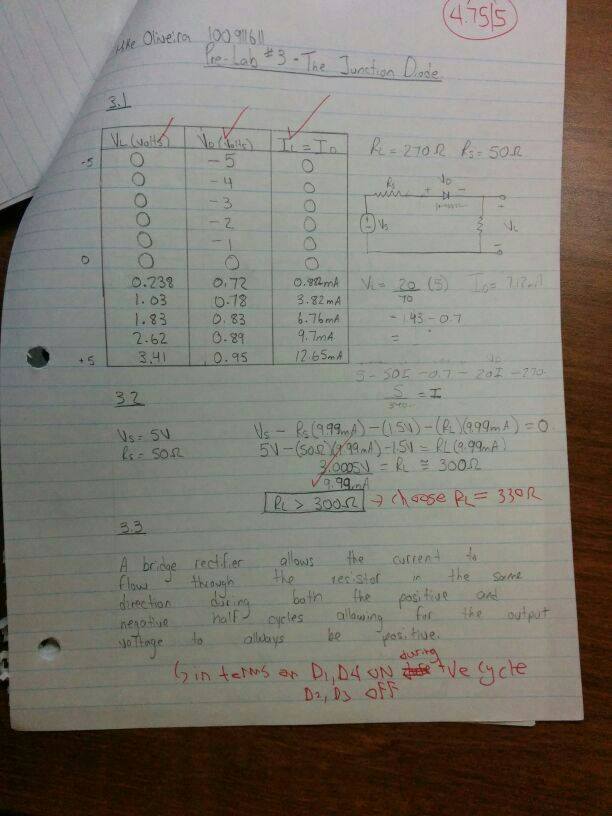 4.75/5
Mike Oliveira 100911611
Pre-Lab #3 - The Junction Diode
3.1
VL (volts) VD (volts) IL = ID
-5 0 -5 0
0 -4 0
0 -3 0
0 -2 0
0 -1 0
0 0 0 0
0.238 0.72 0.882mA
1.03 0.78 3.82mA
1.83 0.83 6.76mA
2.62 0.89 9.7mA
+5 3.41 0.95 12.65mA
RL = 270Ω RS = 50Ω
RS + VD -
VS
+
VL
-
(5)
= I
3.2
VS = 5V
RS = 50Ω
VS - RS(9.99mA) - (1.5V) - (RL)(9.99mA) = 0
5V - (50Ω)(9.99mA) - 1.5V = RL(9.99mA)
3.0005V = RL ≅ 300Ω
9.99mA
RL > 300Ω → choose RL = 330Ω
3.3
A bridge rectifier allows the current to
flow through the resistor in the same
direction during both the positive and
negative half cycles allowing for the output
voltage to always be positive.
↳ in terms of D1, D4 ON during +ve cycle
D2, D3 OFF